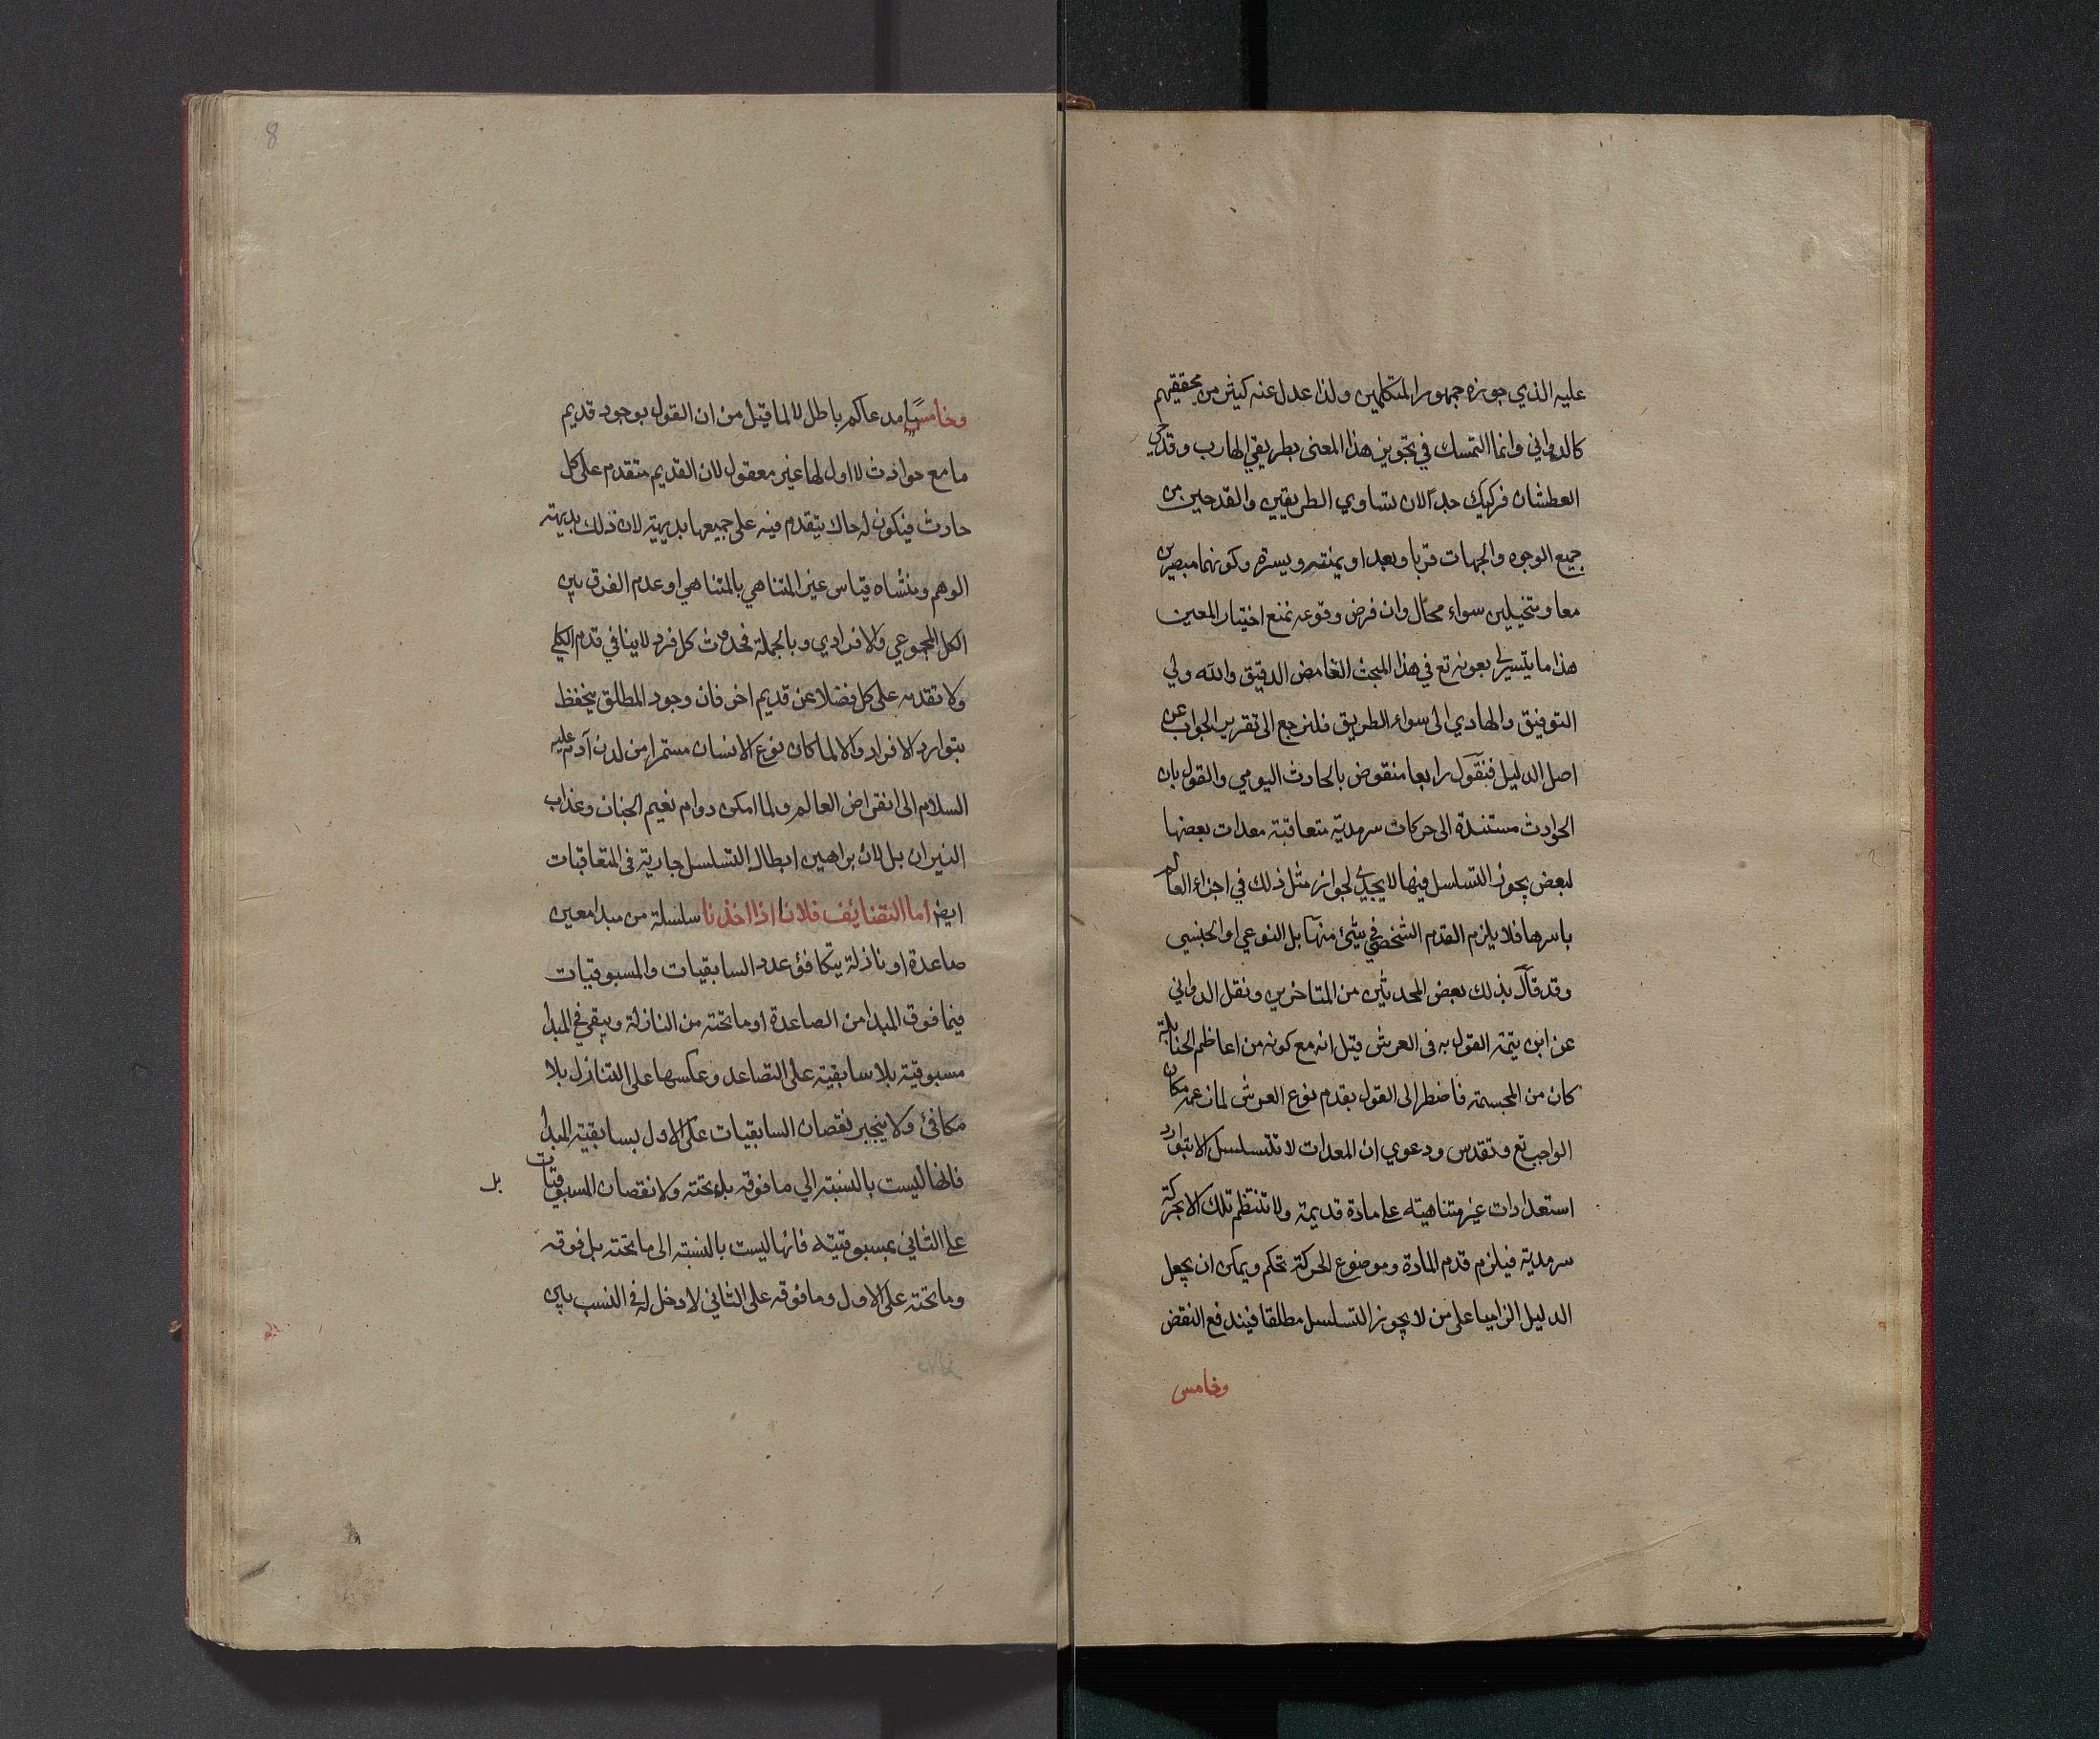 عليه الذي جوزه جمهور المتكلمين ولذا عدل عنه كثير من محققيهم
كالدواني وانما التمسك في تجويز هذا المعنى بطريقي الهارب وقدحي
العطشان فركيك جدا لان تساوي الطريقين والقدحين من
جميع الوجوه والجهات قربا وبعدا ويمنة ويسرة وكونهما مبصرين
معا ومتخيلين سواء محال وان فرض وقوعه نمنع اختيار المعين
هذا ما يتيسر لي بعونه تع في هذا المبحث الغامض الدقيق والله ولي
التوفيق والهادي الى سواء الطريق فلنرجع الى تقرير الجواب عن
اصل الدليل فنقول رابعا منقوض بالحادث اليومي والقول بان
الحوادث مستندة الى حركات سرمدية متعاقبة معدات بعضها
لبعض يجوز التسلسل فيها لا يجدي لجواز مثل ذلك في اجزاء العالم
باسرها فلا يلزم القدم الشخصي في شئ منها بل النوعي او الجنسي
وقد قال بذلك بعض المحدثين من المتاخرين ونقل الدواني
عن ابن تيمة القول به في العرش قيل انه مع كونه من اعاظم الحنابلة
كان من المجسمة فاضطر الى القول بقدم نوع العرش لما زعمه مكان
الواجب تع وتقدس ودعوي ان المعدات لا تتسلسل الا بتوارد
استعدادات غير متناهية على مادة قديمة ولا تنتظم تلك الا بحركة
سرمدية فيلزم قدم المادة وموضوع الحركة تحكم ويمكن ان يجعل
الدليل الزاميا على من لا يجوز التسلسل مطلقا فيندفع النقض
وخامس
8
وخامسا مدعاكم باطل لا لما قيل من ان القول بوجود قديم
ما مع حوادث لا اول لها غير معقول لان القديم متقدم على كل
حادث فيكون له حال يتقدم فيه على جميعها بديهية لان ذلك بديهة
الوهم ومنشاه قياس غير المتناهي بالمتناهي او عدم الفرق بين
الكل المجموعي والافرادي وبالجملة فحدوث كل فرد لا ينافي قدم الكلي
ولا تقدمه على كل فضلا عن قديم اخر فان وجود المطلق ينحفظ
بتوارد الافراد والا لما كان نوع الانسان مستمرا من لدن آدم عليه
السلام الى انقراض العالم ولما امكن دوام نعيم الجنان وعذاب
النيران بل لان براهين ابطال التسلسل جارية في المتعاقبات
ايض اما التضائف فلانا اذا اخذنا سلسلة من مبدا معين
صاعدة او نازلة يتكافؤ عدد السابقيات والمسبوقيات
فيما فوق المبدا من الصاعدة او ما تحته من النازلة ويبقى في المبدا
مسبوقية بلا سابقية على التصاعد وعكسها على التنازل بلا
مكافئ ولا ينجبر نقصان السابقيات على الاول بسابقية المبدا
فانها ليست بالنسبة الي ما فوقه بل تحته ولا نقصان المسبوقيات
بل
على الثاني بمسبوقيته فانها ليست بالنسبة الى ما تحته بل فوقه
وما تحته على الاول وما فوقه على الثاني لا دخل له في النسب بين